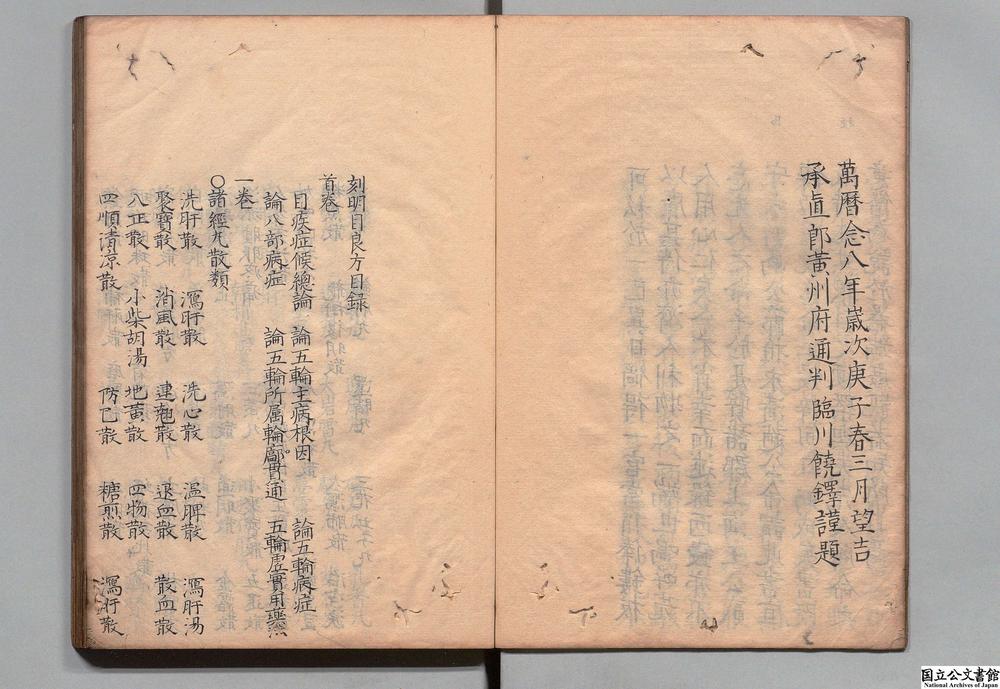 萬曆念八年歲次庚子春三月望吉
承直郎黃州府通判臨川饒鐸謹題
刻明目良方目録
首卷
目疾症候總論 論五輪主病根因 論五輪病症
論八部病症 論五輪所属輪廓貫通 五輪虚實用藥
一卷
〇諸經丸散類
洗肝散 瀉肝散 洗心散 温脾散 瀉肝湯
聚寶散 消風散 連翹散 退血散 散血散
八正散 小柴胡湯 地黄散 四物散
四順清凉散 防己散 糖煎散 瀉肝散
国立公文書館
National Archives of Japan